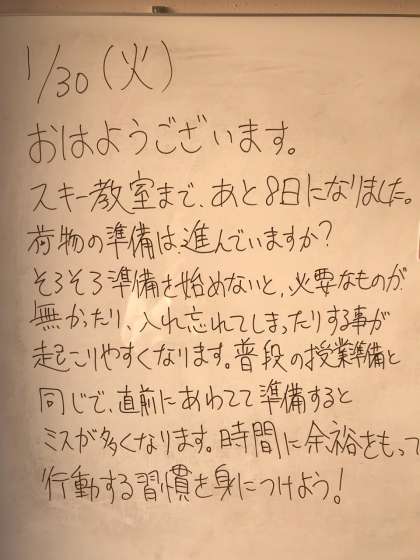 1/30(火)
おはようございます。
スキー教室まで、あと8日になりました。
荷物の準備は、進んでいますか?
そろそろ準備を始めないと、必要なものが
無かったり、入れ忘れてしまったりする事が
起こりやすくなります。普段の授業準備と
同じで、直前にあわてて準備すると
ミスが多くなります。時間に余裕をもって
行動する習慣を身につけよう!